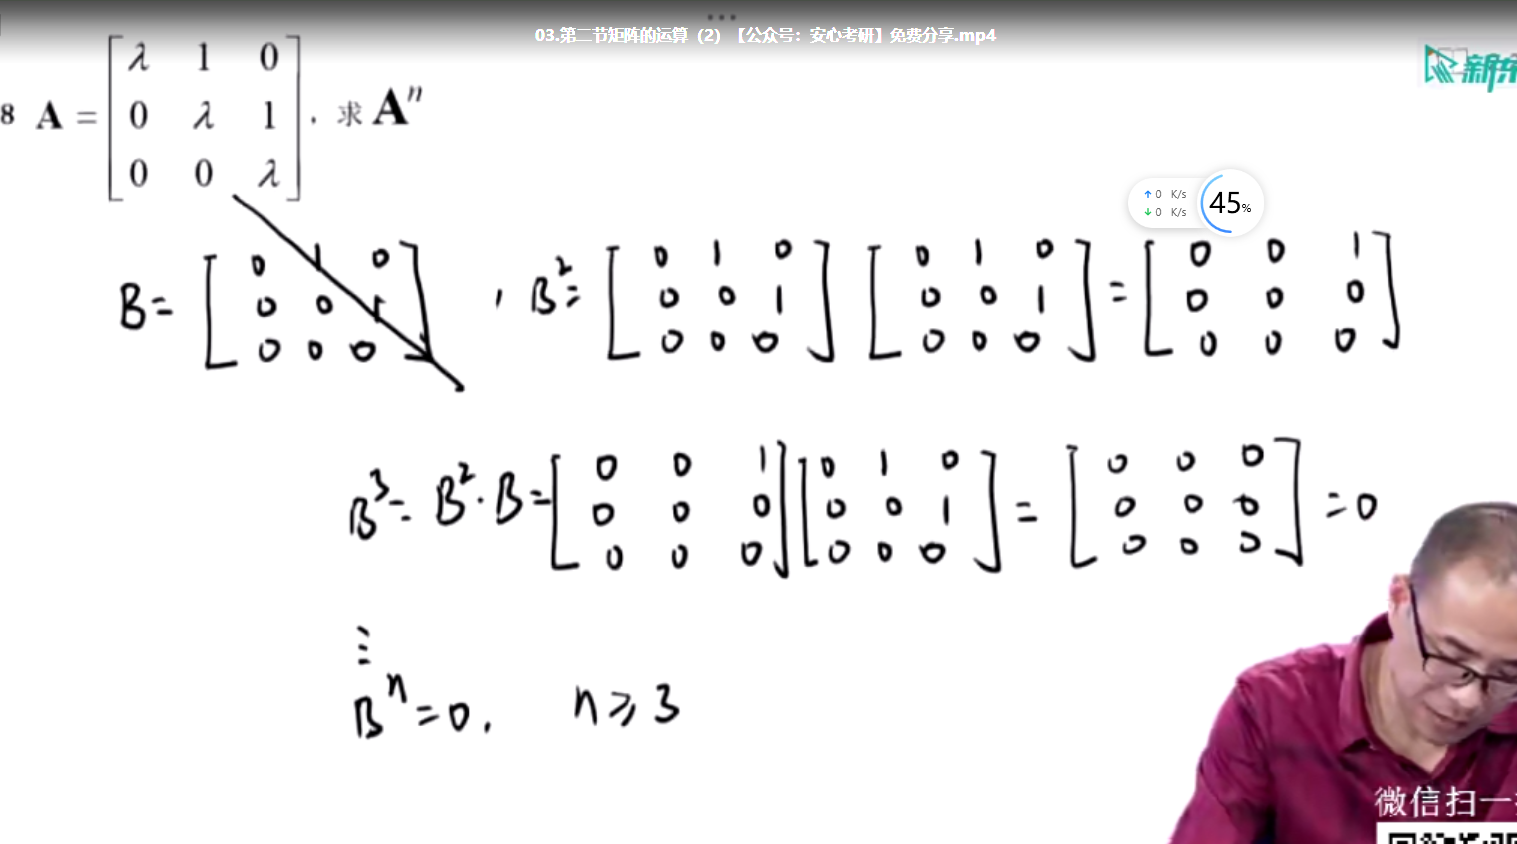 03.第二节矩阵的运算（2）【公众号：安心考研】免费分享.mp4
新东
8 A = [λ 1 0
0 λ 1
0 0 λ] , 求 Aⁿ
↑ 0 K/s
↓ 0 K/s
45%
B = [0 1 0
0 0 1
0 0 0] , B² = [0 1 0
0 0 1
0 0 0] [0 1 0
0 0 1
0 0 0] = [0 0 1
0 0 0
0 0 0]
B³ = B²·B = [0 0 1
0 0 0
0 0 0] [0 1 0
0 0 1
0 0 0] = [0 0 0
0 0 0
0 0 0] = 0
⋮
Bⁿ = 0, n ⩾ 3
微信扫一